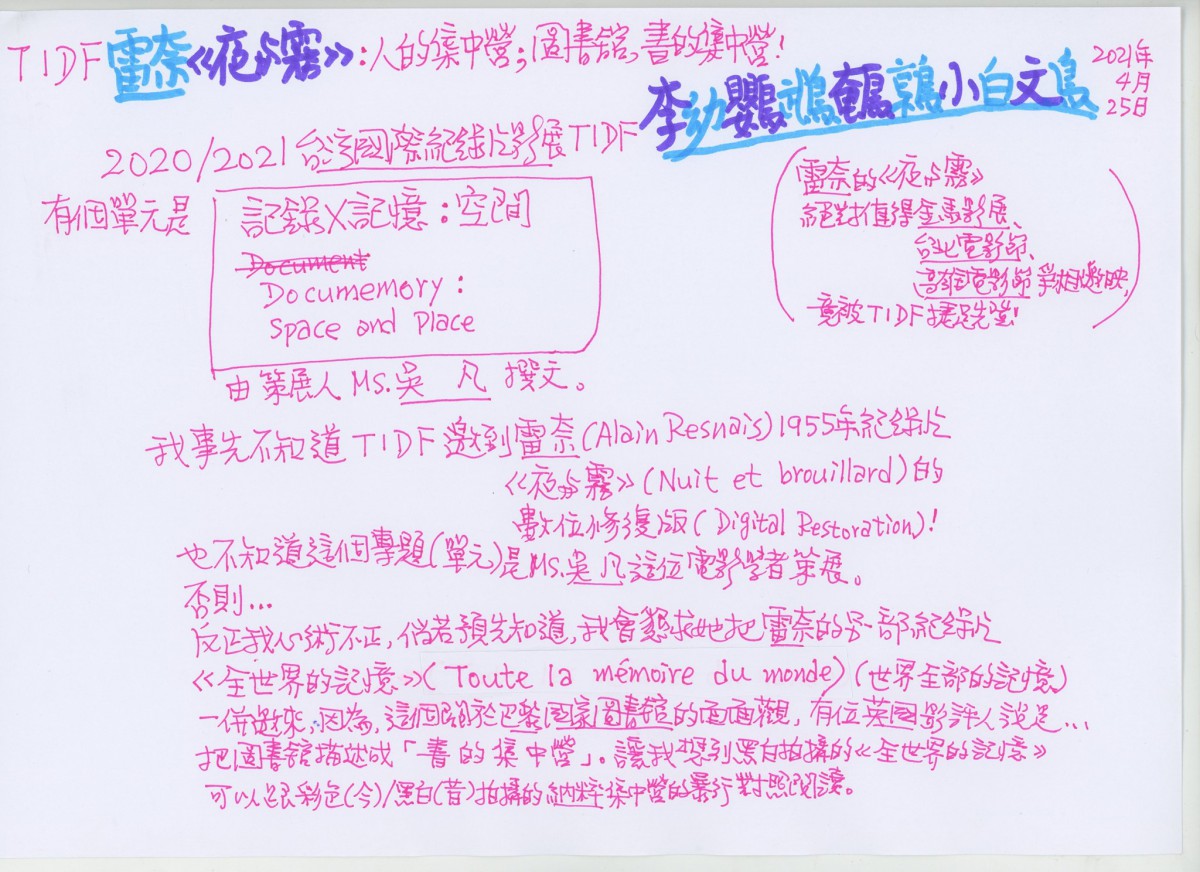 TIDF雷奈《夜與霧》:人的集中營;圖書館,書的集中營!
李幼鸚鵡鵪鶉小白文鳥
2021年
4月
25日
2020/2021台灣國際紀錄片影展TIDF
有個單元是
記錄X記憶:空間
Document
Documemory:
Space and Place
由策展人MS.吳 凡 撰文。
(雷奈的《夜與霧》
絕對值得金馬影展、
台北電影節、
高雄電影節爭相邀映,
竟被TIDF捷足先登!)
我事先不知道TIDF邀到雷奈(Alain Resnais)1955年紀錄片
《夜與霧》(Nuit et brouillard)的
數位修復版(Digital Restoration)!
也不知道這個專題(單元)是MS.吳凡這位電影學者策展。
否則...
反正我心術不正,倘若預先知道,我會懇求她把雷奈的另一部紀錄片
《全世界的記憶》(Toute la mémoire du monde)(世界全部的記憶)
一併邀來,因為,這個關於巴黎國家圖書館的面面觀,有位英國影評人說是...
把圖書館描述成「書的集中營」。讓我想到黑白拍攝的《全世界的記憶》
可以跟彩色(今)/黑白(昔)拍攝的納粹集中營的暴行對照閱讀。